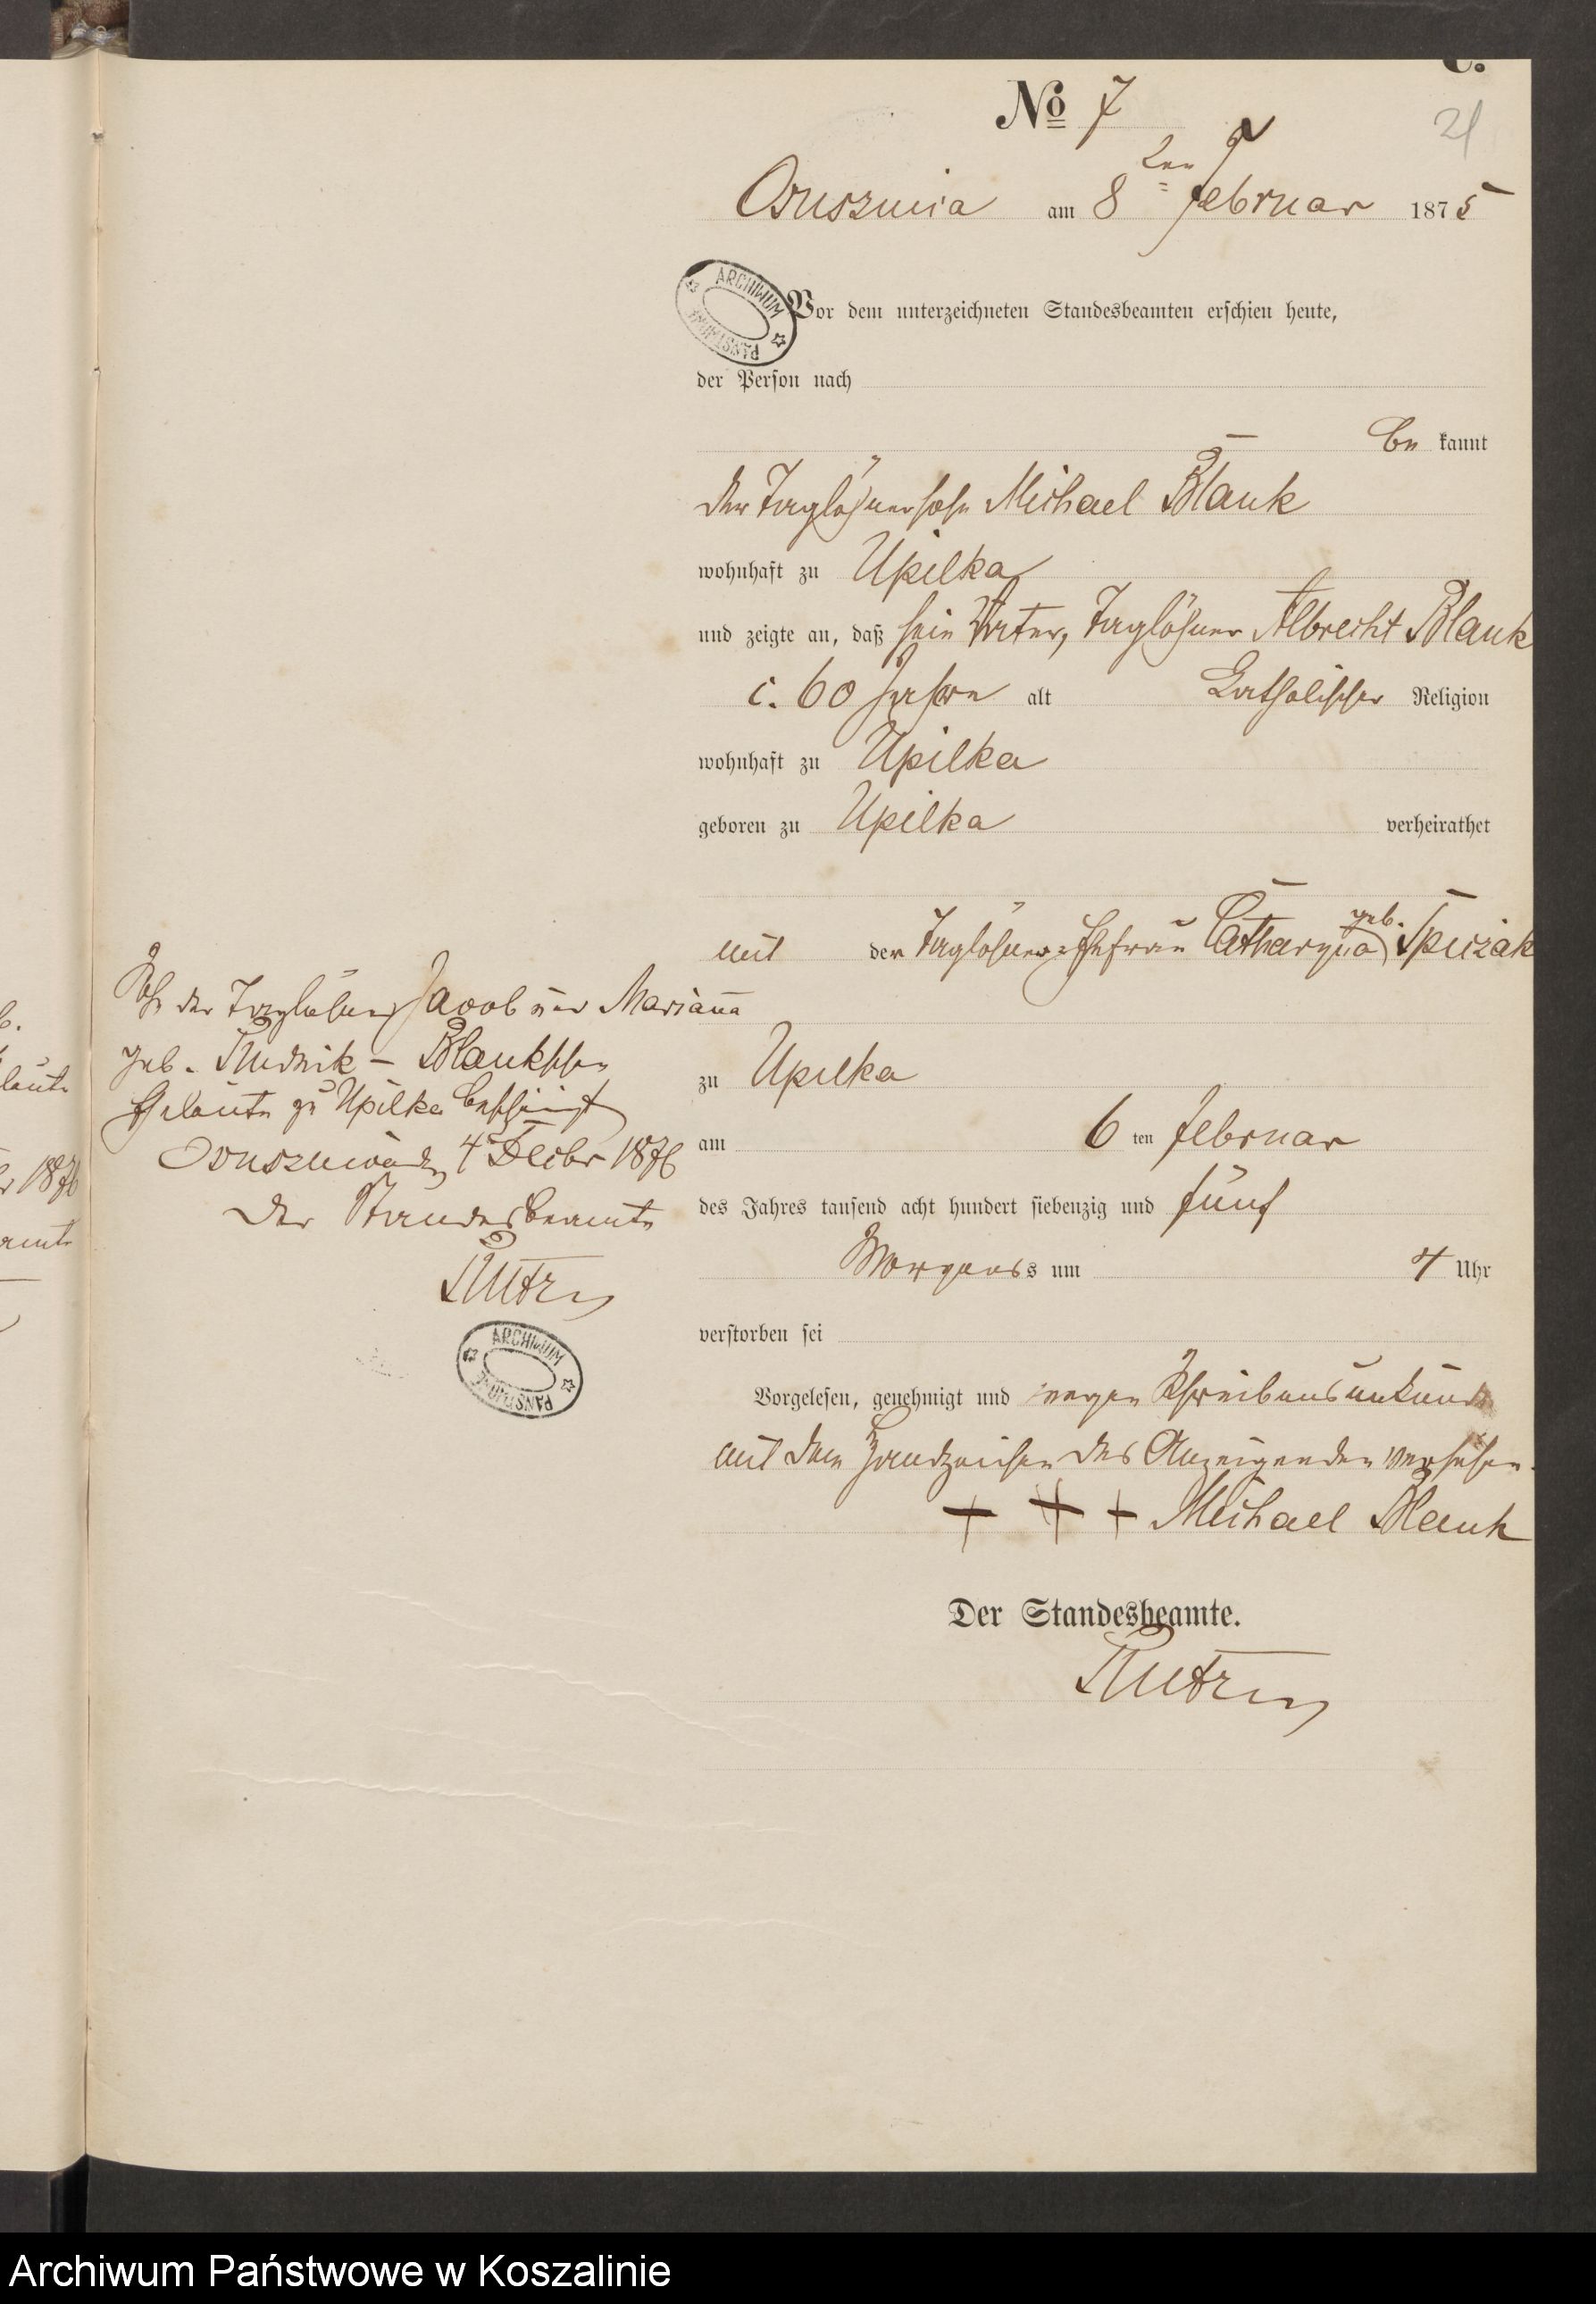 C.
No 7
21
Osusznica am 8ten Februar 1875
ARCHIWUM PAŃSTWOWE
Vor dem unterzeichneten Standesbeamten erschien heute,
der Person nach
be kannt
der Taglöhnersohn Michael Blank
wohnhaft zu Upilka
und zeigte an, daß sein Vater, Taglöhner Albrecht Blank
c. 60 Jahre alt Katholischer Religion
wohnhaft zu Upilka
geboren zu Upilka verheirathet
mit der Taglöhner=Ehefrau Catharyna geb.
zu Upilka
am 6 ten Februar
des Jahres tausend acht hundert siebenzig und fünf
Morgens um 4 Uhr
verstorben sei
Vorgelesen, genehmigt und wegen Schreibensunkunde
mit dem Handzeichen des Anzeigenden versehen.
+ + + Michael Blank
Der Standesbeamte.
Sohn der Taglöhner Jacob und Marianna
geb. Rudnik – Blankschen
Eheleute zu Upilka bescheinigt
4 Decbr 1876
Der Standesbeamte
ARCHIWUM PAŃSTWOWE
leute
1876
amte
Archiwum Państwowe w Koszalinie